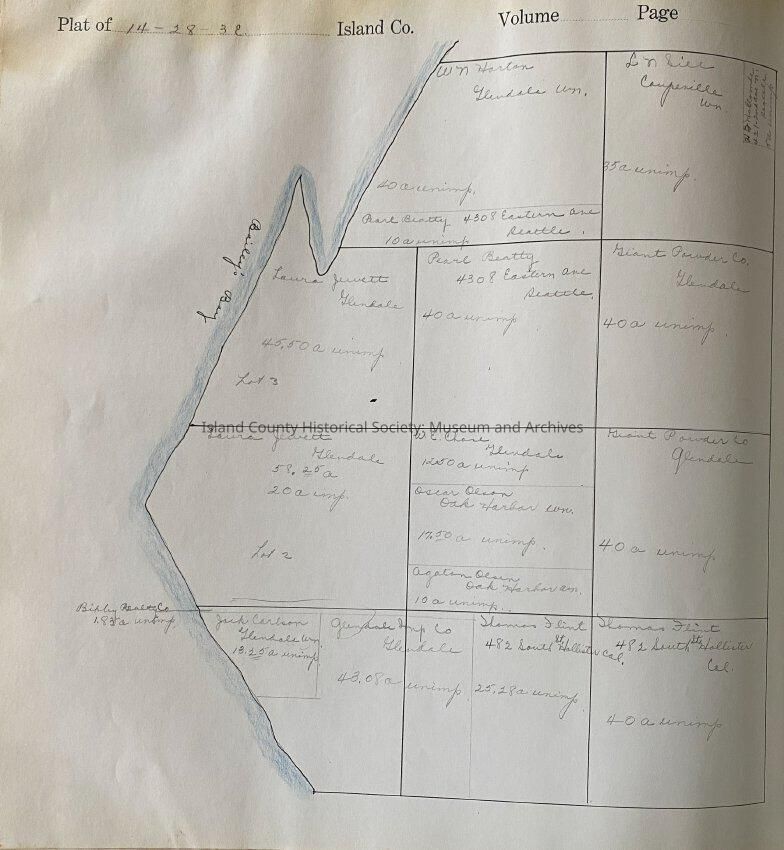 Plat of 14-28-3E Island Co. Volume Page
W N Horton
Glendale Wn.
40 a unimp.
L N
Coupeville
Wn
35 a unimp.
Pearl Beatty 4308 Eastern Ave
Seattle.
10 a unimp
Bailey's Bay
Laura Jewett
Glendale
45.50 a unimp
Lot 3
Pearl Beatty
4308 Eastern Ave
Seattle.
40 a unimp
Giant Powder Co.
Glendale
40 a unimp.
Island County Historical Society: Museum and Archives
Laura Jewett
Glendale
58.25 a
20 a imp.
Lot 2
Glendale
12.50 a unimp
Oscar Olson
Oak Harbor Wn.
17.50 a unimp.
Olson
Oak Harbor Wn.
10 a unimp.
Giant Powder Co
Glendale
40 a unimp
Realty Co
unimp.
Jack Carlson
Glendale Wn
13.25 a unimp
Glendale Imp Co
Glendale
43.08 a unimp
Thomas Flint
482 South St Hollister Cal.
25.28 a unimp
Thomas Flint
482 South St Hollister
Cal.
40 a unimp